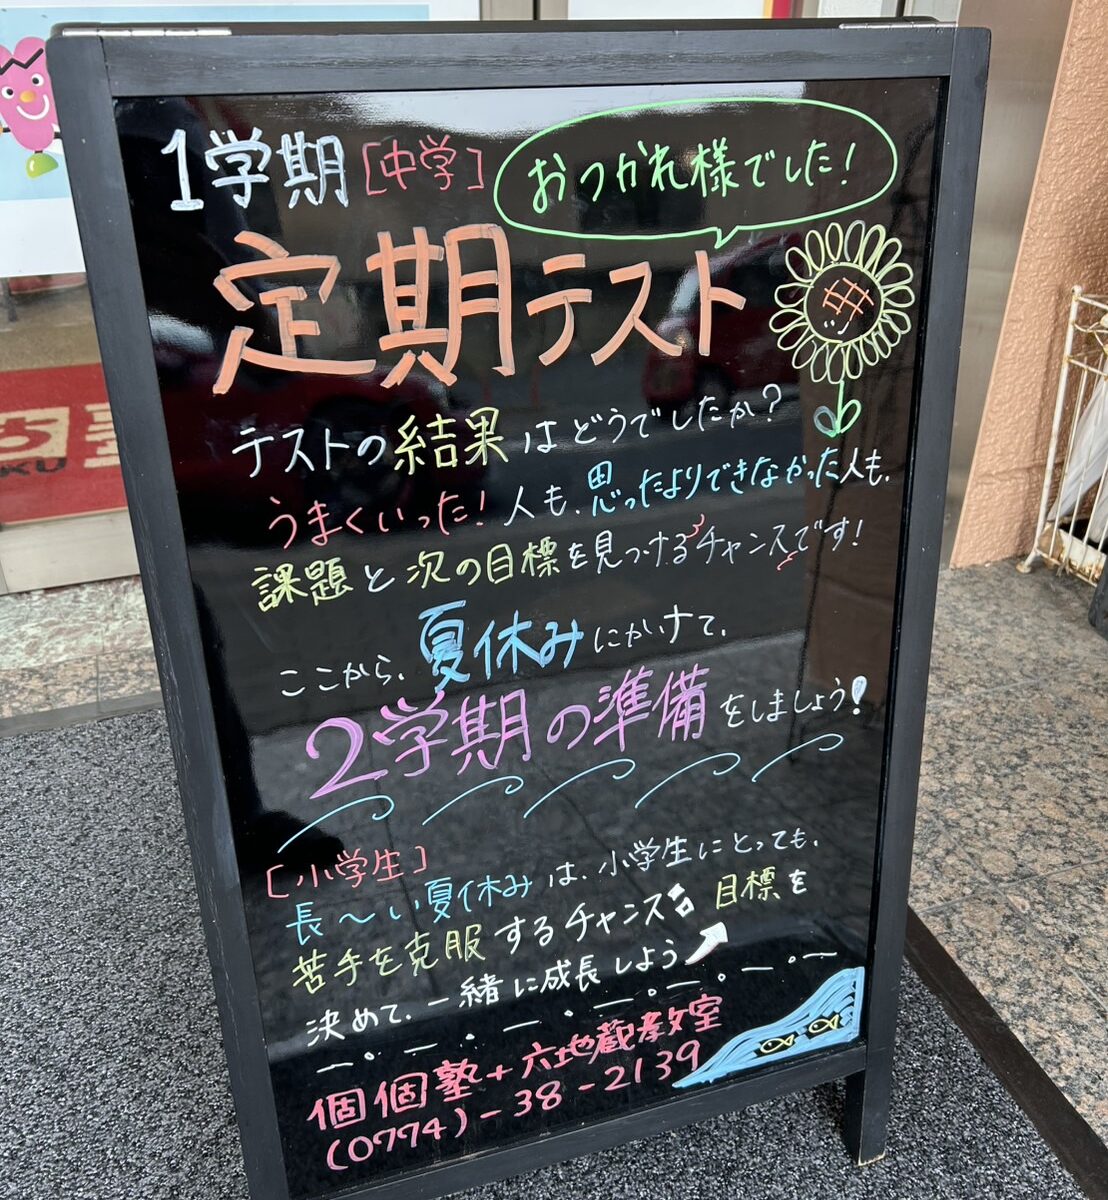 1学期[中学]
おつかれ様でした！
定期テスト
テストの結果はどうでしたか？
うまくいった！人も、思ったよりできなかった人も、
課題と次の目標を見つけるチャンスです！
ここから、夏休みにかけて、
2学期の準備をしましょう！
[小学生]
長〜い夏休みは、小学生にとっても、
苦手を克服するチャンス！！目標を
決めて、一緒に成長しよう
個個塾+六地蔵教室
(0774)-38-2139
KU